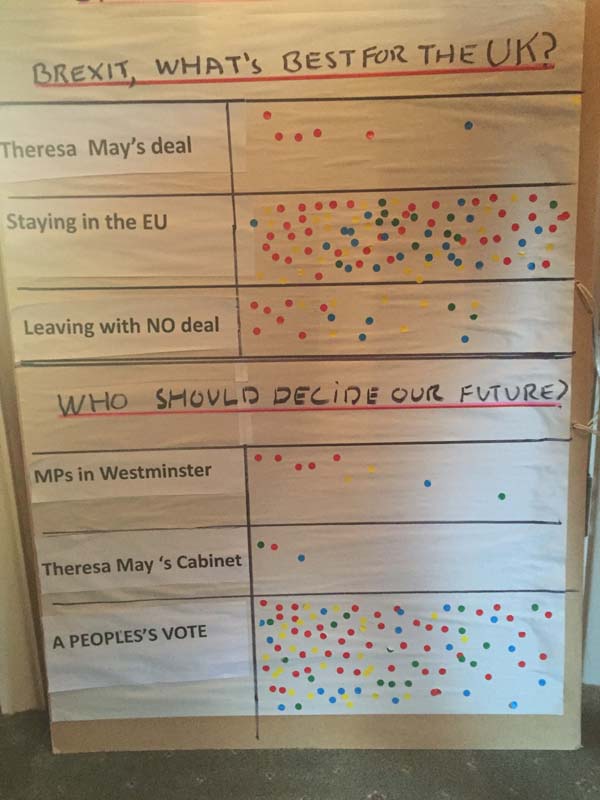 BREXIT, WHAT'S BEST FOR THE UK?
Theresa May's deal
Staying in the EU
Leaving with NO deal
WHO SHOULD DECIDE OUR FUTURE?
MPs in Westminster
Theresa May 's Cabinet
A PEOPLES'S VOTE